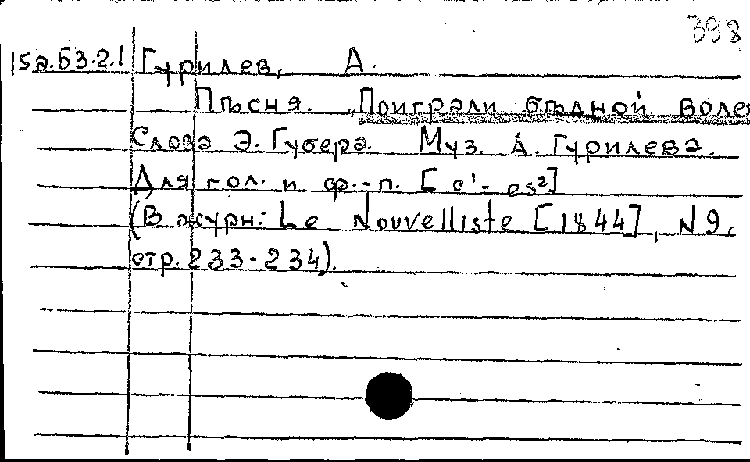 398
15а.63.2.1 Гурилев, А.
Пѣсня. „Поиграли бѣдной волей
Слова Э. Губера. Муз. А. Гурилева.
Для гол. и ф.-п. [e¹- es²]
(В журн: Le Nouvelliste [1844], N 9,
стр. 233-234).